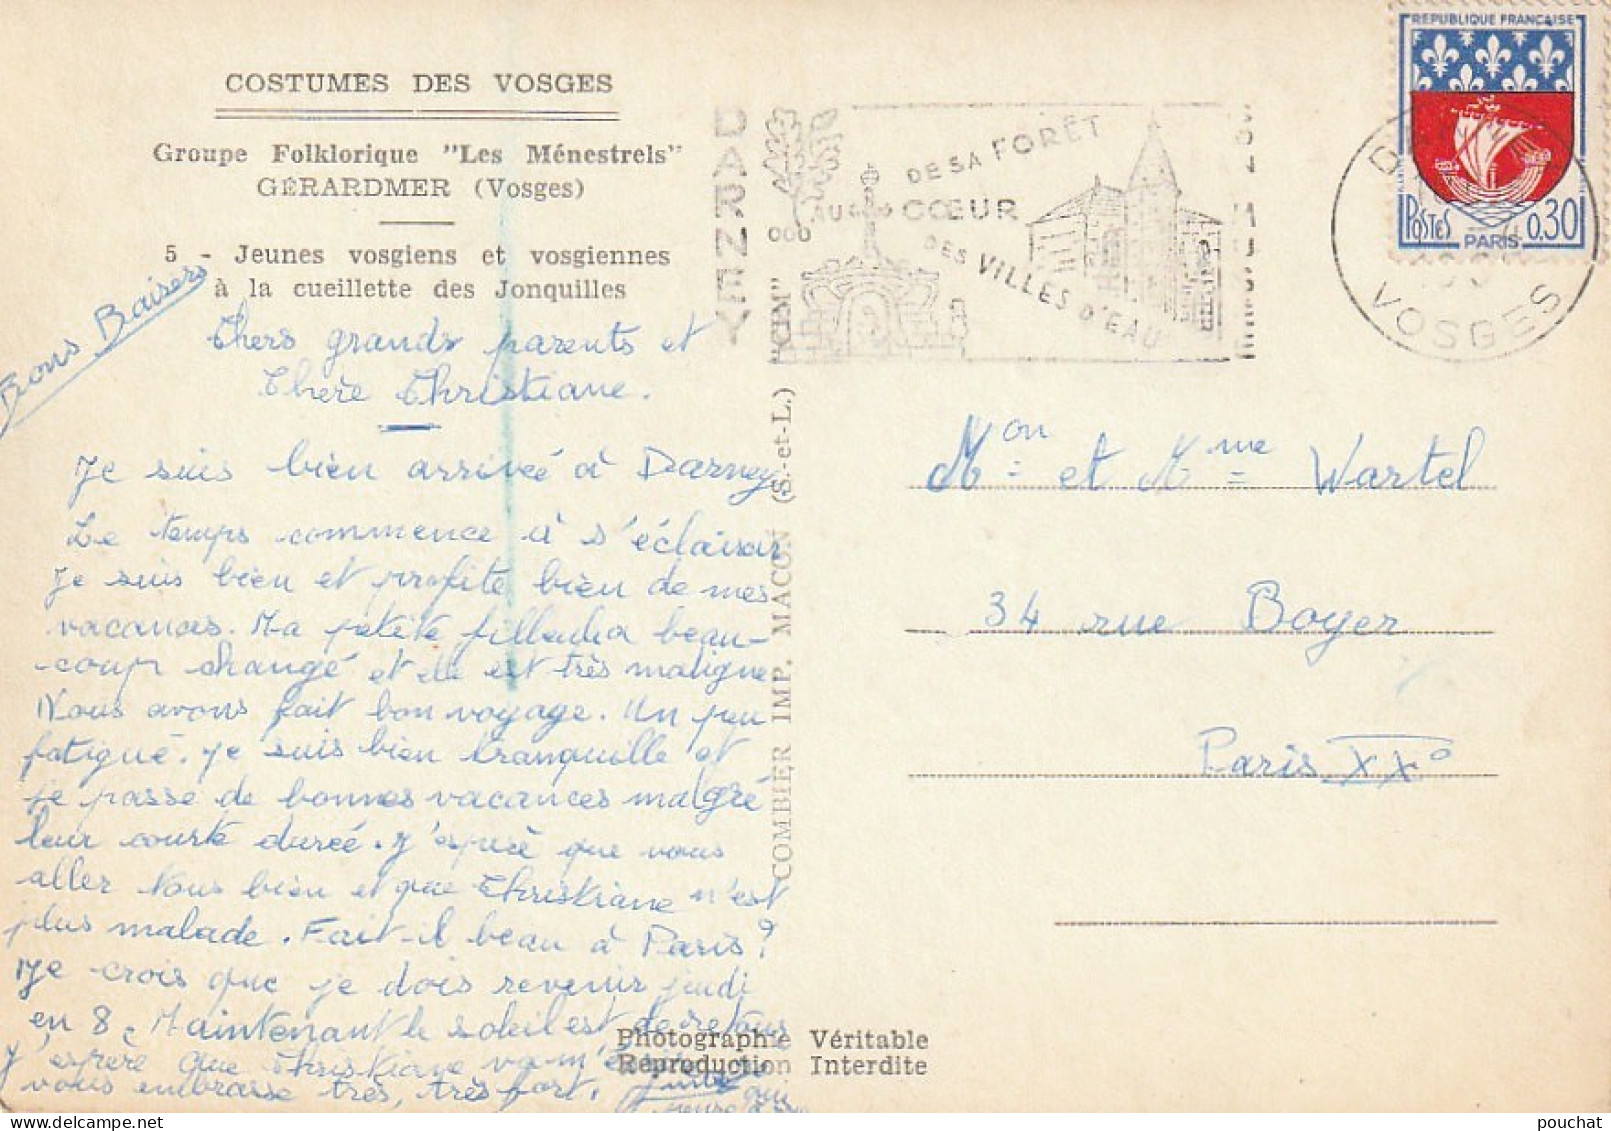 COSTUMES DES VOSGES
Groupe Folklorique "Les Ménestrels"
GÉRARDMER (Vosges)
5 - Jeunes vosgiens et vosgiennes
à la cueillette des Jonquilles
Bons Baisers
Chers grands parents et
Chère Christiane.
Je suis bien arrivée à Darney
Le temps commence à s'éclaircir
Je suis bien et profite bien de mes
vacances. Ma petite fille a beau-
-coup changé et elle est très maligne
Nous avons fait bon voyage. Un peu
fatigué. Je suis bien tranquille et
je passe de bonnes vacances malgré
leur courte durée. J'espère que vous
aller tous bien et que Christiane n'est
plus malade. Fait-il beau à Paris ?
Je crois que je dois revenir jeudi
en 8. Maintenant le soleil est de retour
J'espère que Christiane va m'écrire
vous embrasse très, très fort.
qui
Photographie Véritable
Reproduction Interdite
COMBIER IMP. MACON (S.-et-L.) "CIM"
DARNEY
AU CŒUR
DE SA FORÊT
DES VILLES D'EAU
VOSGES
REPUBLIQUE FRANÇAISE
POSTES
PARIS
0,30
Mon et Mme Wartel
34 rue Boyer
Paris XXe
pouchat